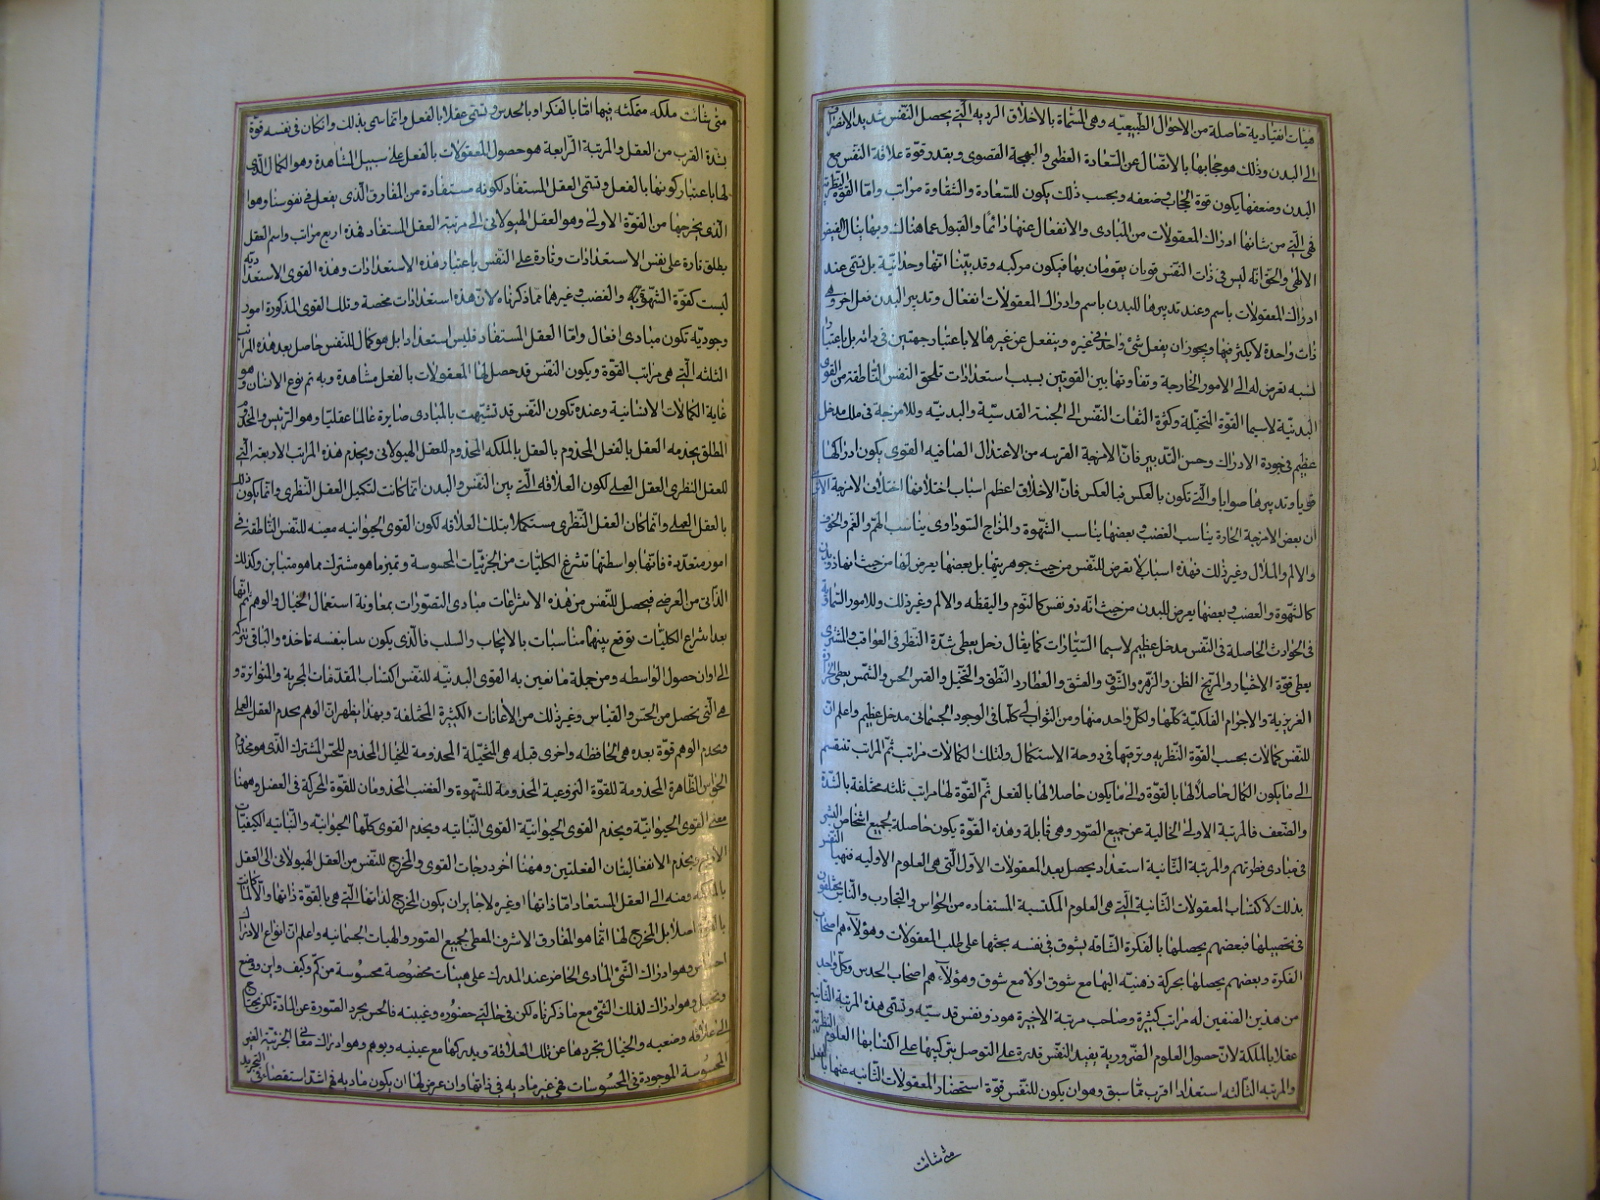 هيات انقيادية حاصلة من الاحوال الطبيعيه وهى المسماة بالاخلاق الرديه الّتى يحصل النّفس شديد الانصراف
الى البدن وذلك هو حجابها بالاتصال عن السّعادة العظمى والبهجة القصوى وبقدر قوة علاقة النّفس مع
البدن وضعفها يكون قوة الحجاب وضعفه وبحسب ذلك يكون للسّعادة والشقاوة مراتب وامّا القوة النظرية
فهى الّتى من شانها ادراك المعقولات من المبادى والانفعال عنها دائما والقبول عما هناك وبها ينال الفيض
الالهى والحق انّه ليس فى ذات النّفس قوتان يقومان بها فيكون مركبه وقد بيّنا انّها وحدانية بل تسمى عند
ادراك المعقولات باسم وعند تدبيرها للبدن باسم وادراك المعقولات انفعال وتدبير البدن فعل اخر وهى
ذات واحدة لا يكثر فيها ويجوز ان يفعل شئ واحد فى غيره وينفعل عن غيرها لا باعتبار جهتين فى ذاته بل باعتبار
نسبه تعرض له الى الامور الخارجة وتفاوتها بين القوتين بسبب استعدادات تلحق النّفس النّاطقة من القوى
البدنيّة لاسيما القوّة المتخيّلة وكثرة التفات النّفس الى الجنبة القدسيّة والبدنيّه وللامزجة فى ذلك مدخل
عظيم فى جودة الادراك وحسن التّدبير فانّ الامزجة القريبه من الاعتدال الصافيه القوى يكون ادراكها
قويا وتدبيرها صوابا والّتى تكون بالعكس فبالعكس فانّ الاخلاق اعظم اسباب اختلافها اختلاف الامزجة
ان بعض الامزجة الحارة يناسب الغضب وبعضها يناسب الشّهوة والمزاج السوداوى يناسب الهمّ والغمّ والخوف
والالم والملال وغير ذلك فهذه اسباب لا تعرض للنّفس من حيث جوهريتها بل بعضها يعرض لها من حيث انها ذو بدن
كالشّهوة والغضب وبعضها يعرض للبدن من حيث انّه ذو نفس كالنّوم واليقظه والالم وغير ذلك وللامور السّماوية
فى الحوادث الحاصلة فى النّفس مدخل عظيم لاسيما السّيّارات كما يقال زحل يعطى شدّة النّظر فى العواقب والمشترى
يعطى قوّة الاختيار والمرّيخ الظن والزّهره والشّوق والعشق والعطارد النّطق والتّخيّل والقمر الحس والشّمس يعطى الحرارة
الغريزية والاجرام الفلكيّة كلّها ولكلّ واحد منها ومن الثوابت كلّها فى الوجود الجسمانى مدخل عظيم واعلم ان
للنّفس كمالات بحسب القوّة النّظريه وترقيها فى درجة الاستكمال ولتلك الكمالات مراتب ثمّ المراتب تنقسم
الى ما يكون الكمال حاصلاً لها بالقوّة والى ما يكون حاصلا لها بالفعل ثمّ القوّة لها مراتب ثلثه مختلفة بالشدّة
والضّعف فالمرتبة الاولى الخالية عن جميع الصّور وهى قابلة وهذه القوّة يكون حاصلة لجميع اشخاص البشر
فى مبادى فطرتهم والمرتبة الثّانية استعداد يحصل بعد المعقولات الاوّل الّتى هى العلوم الاوليه فتهيأ النّفس
بذلك لاكتساب المعقولات الثّانية الّتى هى العلوم المكتسبة المستفاده من الحواس والتجارب والنّاس يختلفون
فى تحصيلها فبعضهم يحصلها بالفكرة الشّاقه بشوق فى نفسه يحثها على طلب المعقولات وهؤلاء هم اصحاب
الفكرة وبعضهم يحصلها بحركة ذهنيّه اليها مع شوق او لا مع شوق وهؤلاء هم اصحاب الحدس وكلّ واحد
من هذين الصنفين له مراتب كثيرة وصاحب مرتبة الاخيرة هو ذو نفس قدسيّه وتسمّى هذه المرتبة الثّانيه
عقلا بالملكة لانّ حصول العلوم الضّرورية يفيد النّفس قدرة على التوصل بتركيبها على اكتسابها العلوم النظريّه
والمرتبة الثّالثه استعداد اقرب ممّا سبق وهو ان يكون للنّفس قوّة استحضار المعقولات الثّانيه عنها بالفعل
متى شائت
متى شائت ملكه متمكنه فيها امّا بالفكر او بالحدس وتسمى عقلا بالفعل وانّما سمى بذلك وان كان فى نفسه قوّة
بشدّة القرب من العقل والمرتبة الرّابعة هو حصول المعقولات بالفعل على سبيل المشاهدة وهو الكمال الّذى
لها باعتبار كونها بالفعل وتسمى العقل المستفاد لكونه مستفادة من المفارق الّذى يفعل فى نفوسنا وهو
الّذى يخرجها من القوّة الاولى وهو العقل الهيولانى الى مرتبة العقل المستفاد فهذه اربع مراتب واسم العقل
يطلق تارة على نفس الاستعدادات وتارة على النّفس باعتبار هذه الاستعدادات وهذه القوى الاستعدادية
ليست كقوّة الشّهوة والغضب وغيرهما مما ذكرناه لانّ هذه استعدادات محضة وتلك القوى المذكورة امور
وجوديّة تكون مبادى افعال وامّا العقل المستفاد فليس استعدادا بل هو كمال للنّفس حاصل بعد هذه المراتب
الثلثه الّتى هى مراتب القوّة ويكون النّفس قد حصل لها المعقولات بالفعل مشاهدة وبه تم نوع الانسان وهو
غاية الكمالات الانسانية وعنده تكون النّفس قد تشبّهت بالمبادى صايرة عالما عقليا وهو الرّئيس والمخدوم
المطلق يخدمه العقل بالفعل المخدوم بالعقل بالملكه المخدوم للعقل الهيولانى ويخدم هذه المراتب الاربعه الّتى
للعقل النظرى العقل العملى لكون العلاقه الّتى بين النّفس والبدن انّما كانت لتكميل العقل النّظرى وانّما يكون ذلك
بالعقل العملى وانّما كان العقل النّظرى مستكملا بتلك العلاقه لكون القوى الحيوانيه معينه للنّفس النّاطقه فى
امور متعدّدة فانّها بواسطتها تنتزع الكليّات من الجزئيّات المحسوسة وتميز ما هو مشترك مما هو متباين وكذلك
الذّاتى من العرضى فيحصل للنّفس من هذه الانتزاعات مبادى التصوّرات بمعاونة استعمال الخيال والوهم ثمّ انّها
بعد انتزاع الكليّات توقع بينها مناسبات بالايجاب والسلب فالّذى يكون بينا بنفسه تاخذه والباقى تتركه
الى اوان حصول الواسطه ومن جملة ما تعين به القوى البدنيّه للنّفس اكتساب المقدّمات المجربة والمتواترة و
هى الّتى يحصل من الحسّ والقياس وغير ذلك من الاعانات الكثيرة المختلفة وبهذا يظهر انّ الوهم يخدم العقل العملى
ويخدم الوهم قوّة بعده هى الحافظه واخرى قبله هى المتخيّلة المخدومة للخيال المخدوم للحسّ المشترك الّذى هو مخدوم
الحواس الظّاهرة المخدومة للقوّة النزوعية المخدومة للشّهوة والغضب المخدومان للقوّة المحركة فى العضل وههنا
معنى القوى الحيوانيّة ويخدم القوى الحيوانيّة القوى النّباتيه ويخدم القوى كلّها الحيوانيّه والنّباتيه الكيفيّات
ويخدم الانفعاليتان الفعلتين وههنا اخر درجات القوى والمخرج للنّفس من العقل الهيولانى الى العقل
بالملكه ومنه الى العقل المستفاد امّا ذاتها او غيره لا جايز ان يكون المخرج لذاتها الّتى هى بالقوّة ذاتها والا لما كانت
اصلاً بل المخرج لها انّما هو المفارق الاشرف المعطى لجميع الصّور والهيات الجسمانيه واعلم انّ انواع الادراك
وهو ادراك الشّئ المادى الخاص عند المدرك على هيئات مخصوصة محسوسة من كمّ وكيف واين ووضع
وتخيل وهو ادراك لذلك الشّى مع ما ذكرناه لكن فى حالتى حضوره وغيبته فالحس يجرد الصّورة عن المادّة لكن يحتاج
الى علاقه وضعيه والخيال يجردها عن تلك العلاقة ويدركها مع غيبته وبوهم وهو ادراك معانى الجزئيّة الغير
المحسوسة الموجودة فى المحسوسات فهى غير ماديه فى ذاتها وان عرض لها ان يكون ماديه فهو اشد استقصاء فى التجريد